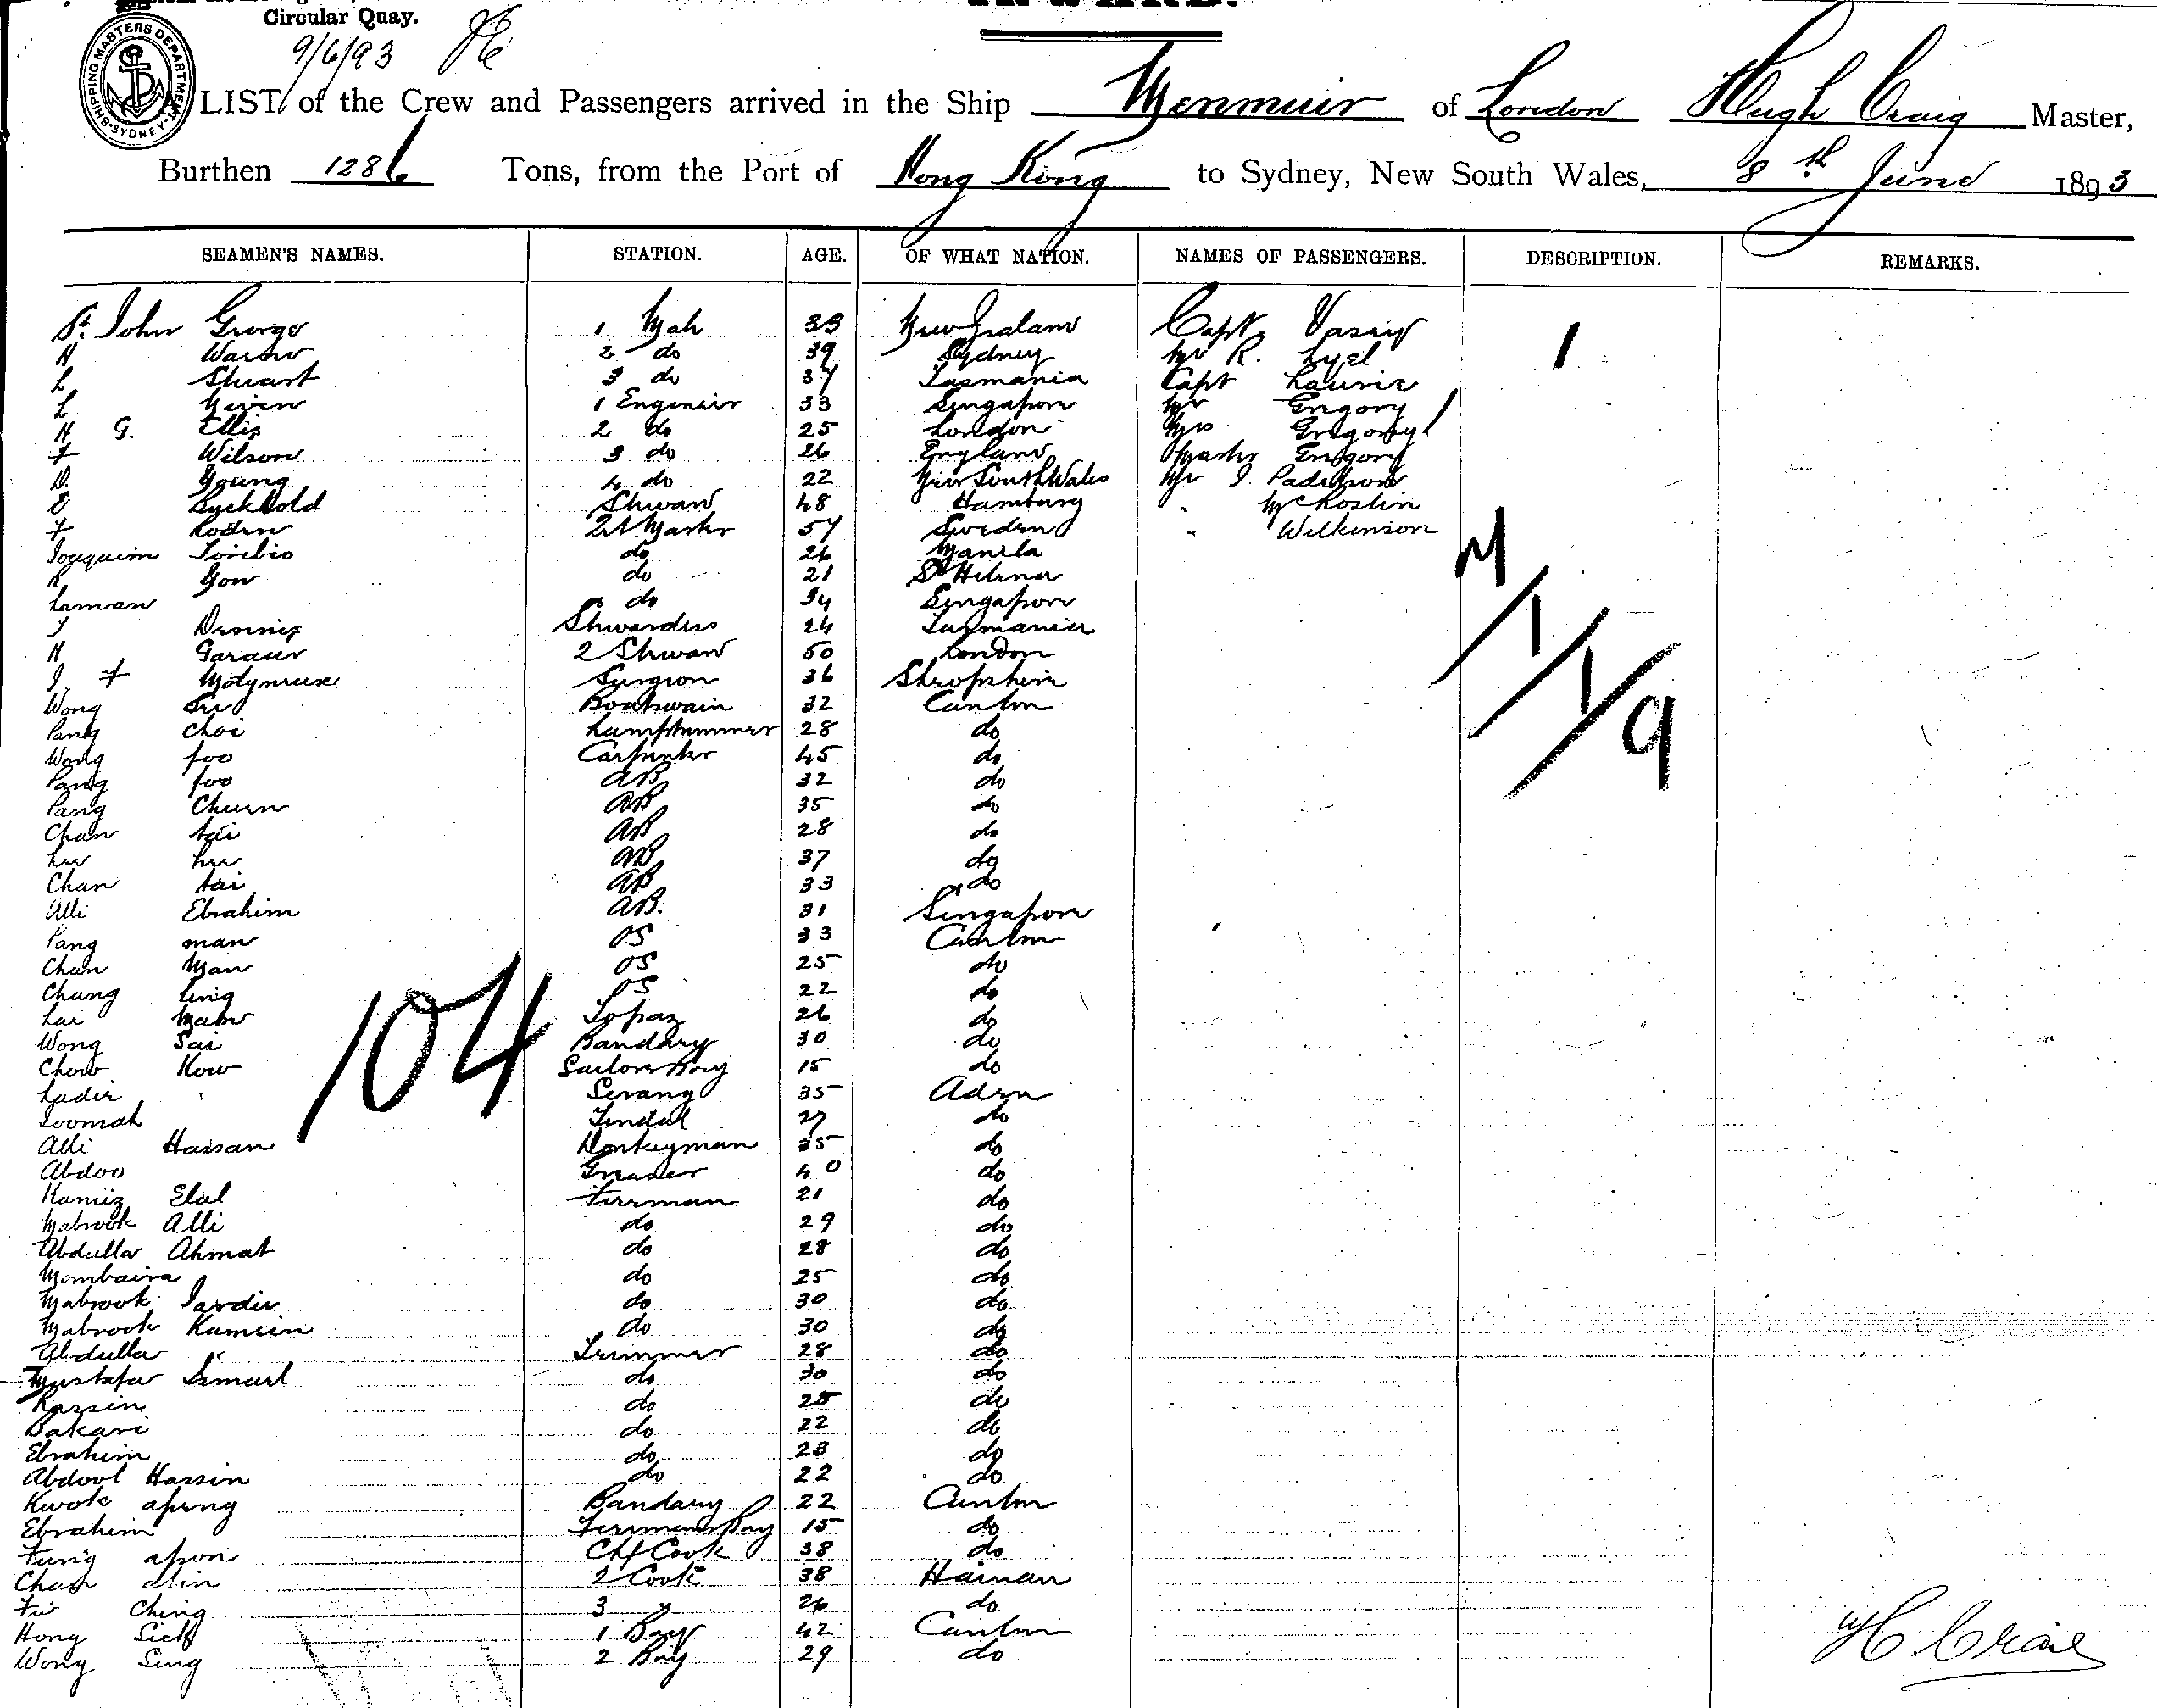 Circular Quay.
INWARD.
9/6/93
SHIPPING MASTERS DEPARTMENT SYDNEY
A LIST of the Crew and Passengers arrived in the Ship Menmuir of London Hugh Craig Master,
Burthen 1286 Tons, from the Port of Hong Kong to Sydney, New South Wales, 8th June 1893
SEAMEN'S NAMES. STATION. AGE. OF WHAT NATION. NAMES OF PASSENGERS. DESCRIPTION. REMARKS.
St. John George 1 Mate 33 Capt Vasey 1
H 2 do 39 Sydney Mr R. Lyel
L Stuart 3 do 37 Tasmania Capt Laurie
L Niven 1 Engineer 33 Singapore Mr Gregory
H G. Ellis 2 do 25 London Mrs Gregory
F Wilson 3 do 26 England Master Gregory
D. Young 4 do 22 New South Wales Mr J.
E Steward 48 Hamburg
F Roden Qt Master 57 Sweden Wilkinson
Torebio do 26 Manila
R Gow do 21 St Helena
Laman do 34 Singapore
J Dennis Stewardess 24 Tasmania
H 2 Steward 50 London
J. F Molyneux Surgeon 36 Shropshire
Wong Boatswain 32 Canton
Pang Choi Lamptrimmer 28 do
Wong foo Carpenter 45 do
Pang foo AB 32 do
Pang Chuen AB 35 do
Chan tai AB 28 do
AB 37 do
Chan tai AB 33 do
Alli Ebrahim AB. 31 Singapore
Pang man OS 33 Canton
Chan Man OS 25 do
Chang OS 22 do
Lai Topaz 26 do
Wong Sai Bandary 30 do
Chow Kow Sailors Boy 15 do
Serang 35 Aden
Soomah Tindal 27 do
Alli Hassan Donkeyman 35 do
Abdoo Greaser 40 do
Hamiz Elal Fireman 21 do
Mabrook Alli do 29 do
Abdulla Ahmat do 28 do
Mombaira do 25 do
Mabrook do 30 do
Mabrook Kamsin do 30 do
Abdulla Trimmer 28 do
Mustafa Ismael do 30 do
Kassin do 25 do
Bakari do 22 do
Ebrahim do 23 do
Abdool Hassin do 22 do
Kwok Bandary 22 Canton
Ebrahim Firemans Boy 15 do
Fung apon Chf Cook 38 do
Chan 2 Cook 38 Hainan
Ching 3 " 26 do
Hong 1 Boy 42 Canton
Wong Sing 2 Boy 29 do
104
1/1/9
H. Craig